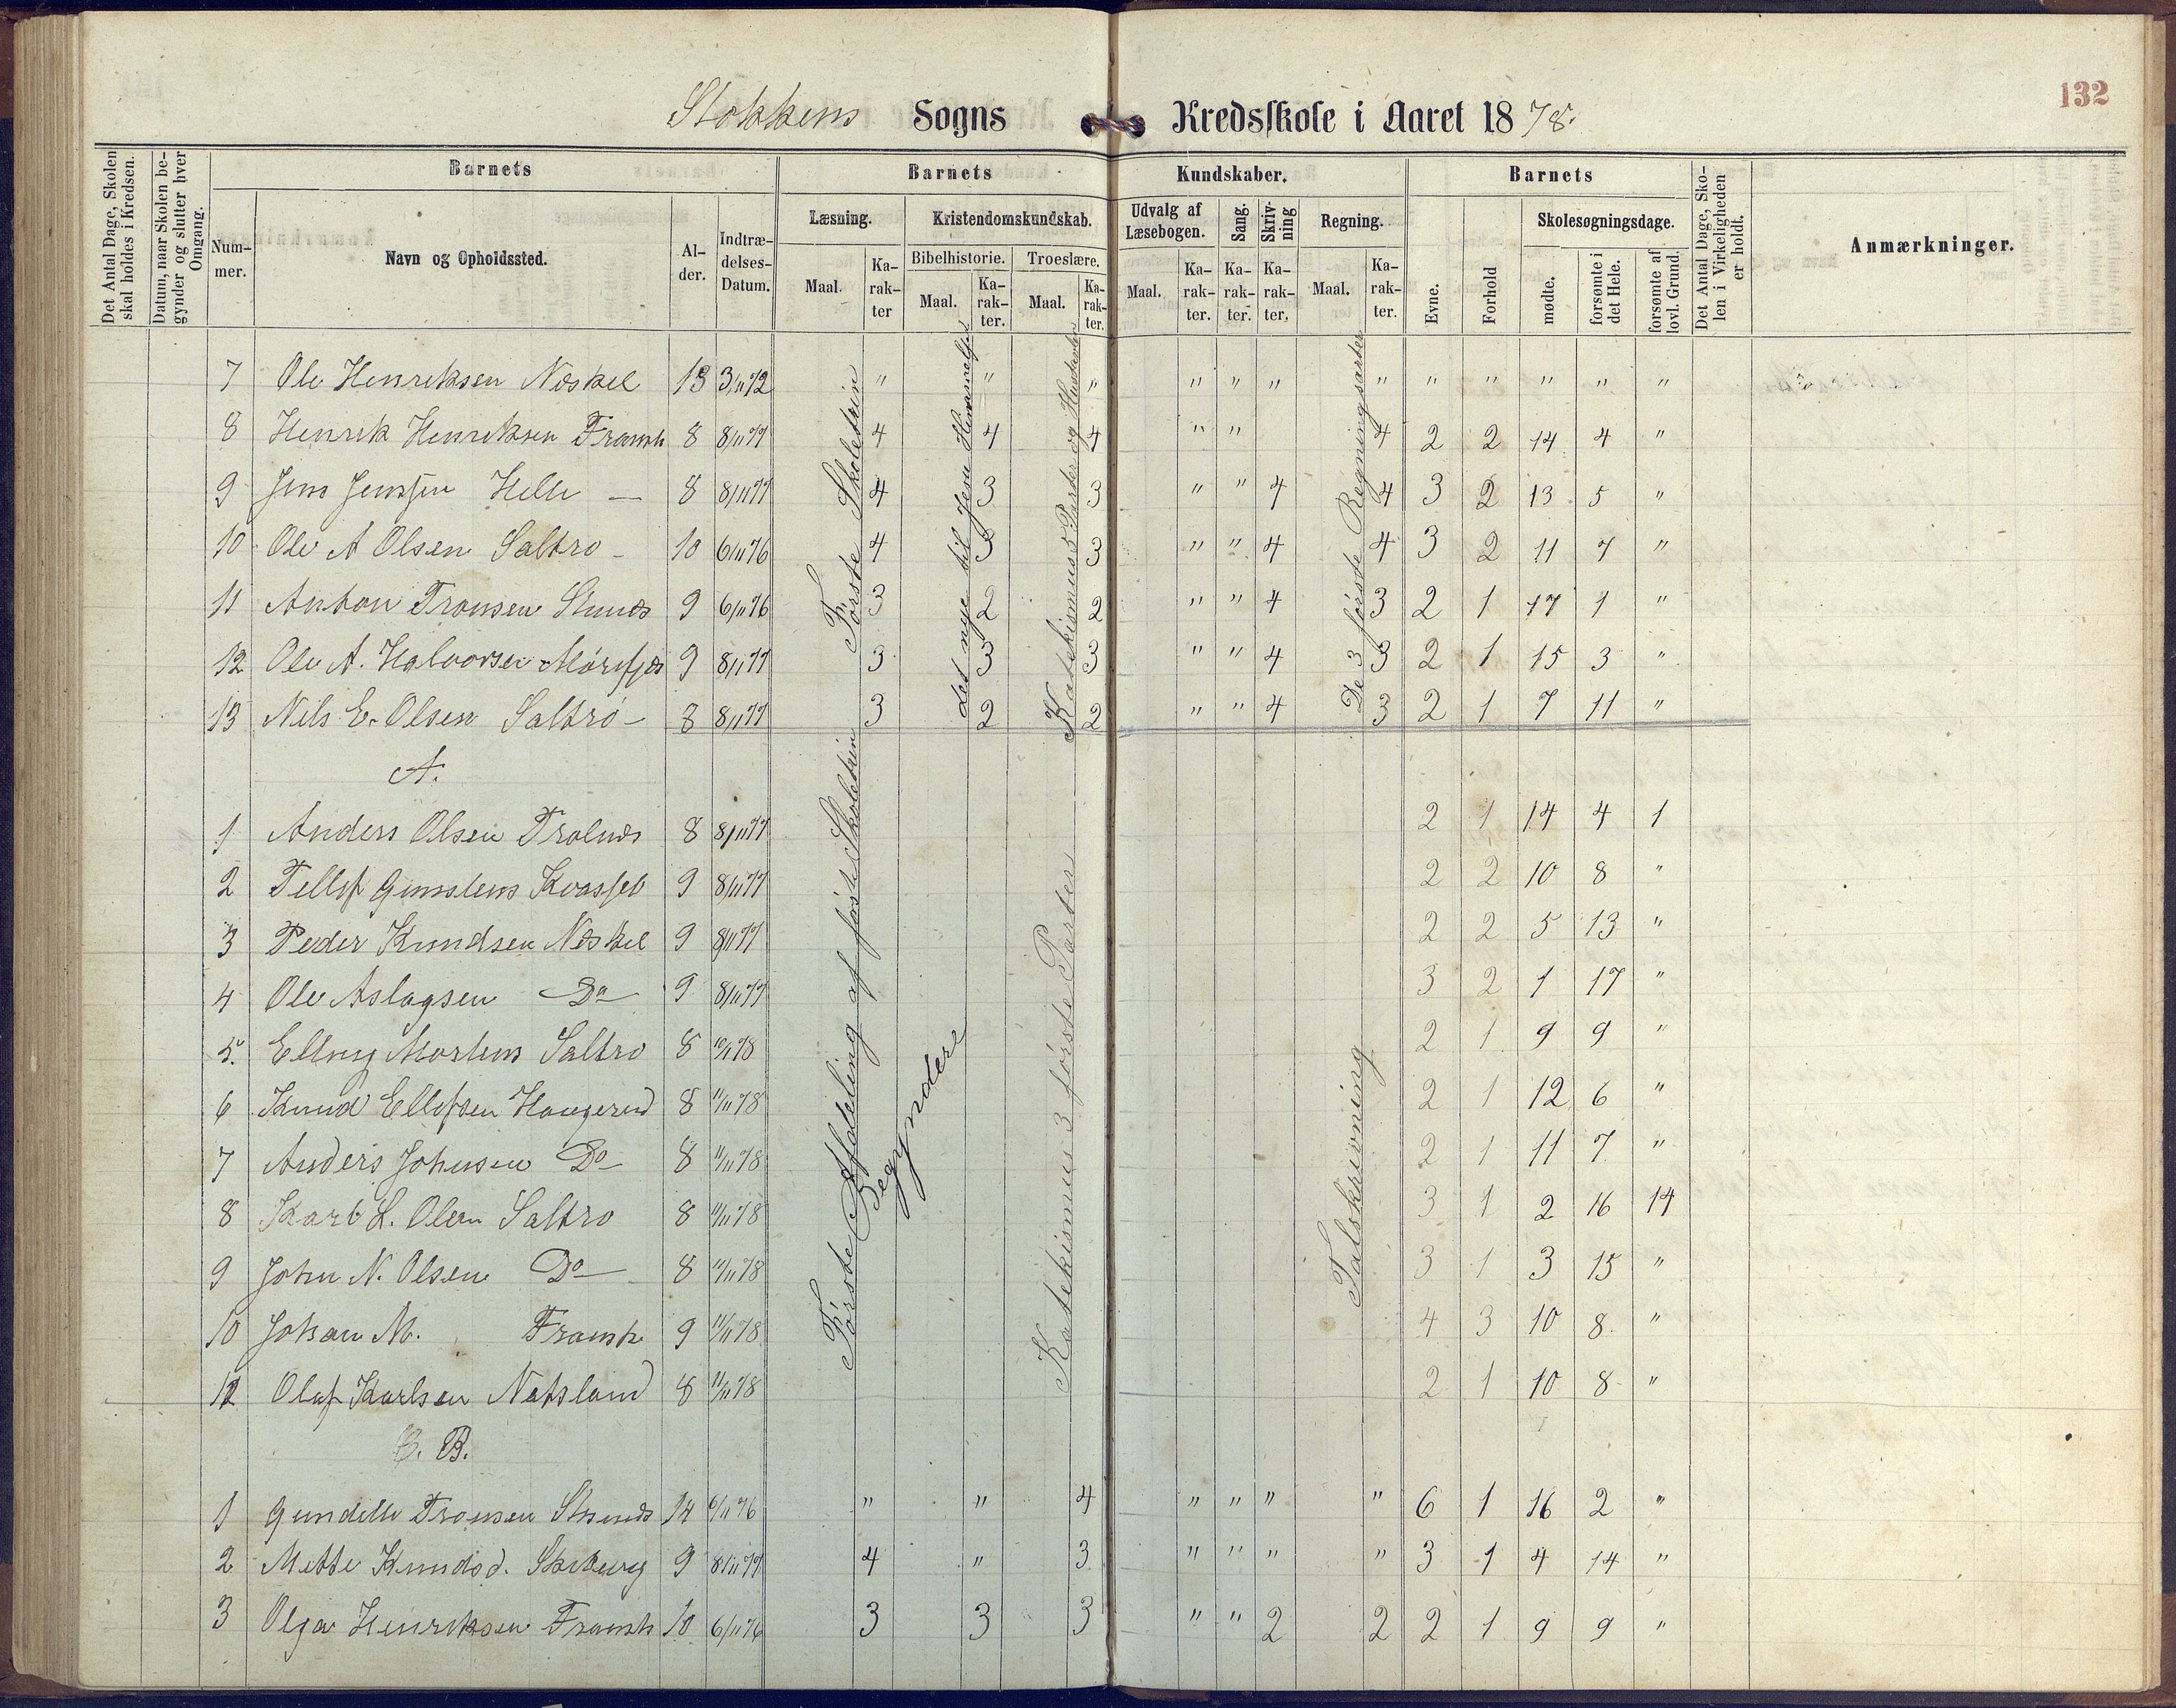 132
Stokkens Sogns Kredsskole i Aaret 1878.
Det Antal Dage, Skolen skal holdes i Kredsen.
Datum, naar Skolen begynder og slutter hver Omgang.
Barnets
Nummer.
Navn og Opholdssted.
Alder.
Indtrædelses-Datum.
Barnets Kundskaber.
Læsning.
Maal.
Karakter
Kristendomskundskab.
Bibelhistorie.
Maal.
Karakter.
Troeslære.
Maal.
Karakter.
Udvalg af Læsebogen.
Maal.
Karakter.
Sang.
Karakter.
Skrivning
Karakter.
Regning.
Maal.
Karakter.
Barnets
Evne.
Forhold
Skolesøgningsdage.
mødte.
forsømte i det Hele.
forsømte af lovl. Grund.
Det Antal Dage, Skolen i Virkeligheden er holdt.
Anmærkninger.
Første Skoletrin
det nye til Jesu Himmelf
Katekismus 5 Parter og Hustavlen
De 3 første Regningsarter
7 Ole Henriksen Neskel 13 3/11 72 " " " " " " " " " " " "
8 Henrik Henriksen 8 8/11 77 4 4 4 " " 4 2 2 14 4 "
9 Jens Jenssen Helle — 8 8/11 77 4 3 3 " " 4 4 3 2 13 5 "
10 Ole A Olsen Saltrø - 10 6/11 76 4 3 3 " " 4 4 3 2 11 7 "
11 Anton Tronsen 9 6/11 76 3 2 2 " " 4 3 2 1 17 1 "
12 Ole A. Halvorsen 9 8/11 77 3 3 3 " " 4 3 2 1 15 3 "
13 Nils E. Olsen Saltrø - 8 8/11 77 3 2 2 " " 4 3 2 1 7 11 "
A.
Første Afdeling af første Skoletrin
Begyndere
Katekismus 3 første Parter
Talskrivning
1 Anders Olsen Trolnes 8 8/11 77 2 1 14 4 1
2 Tellef 9 8/11 77 2 2 10 8 "
3 Peder Knudsen Neskel 9 8/11 77 2 2 5 13 "
4 Ole Aslagsen Do 9 8/11 77 3 2 1 17 "
5. Saltrø 8 2 1 9 9 "
6 Knud Ellefsen Haugerød 8 11/11 78 2 1 12 6 "
7 Anders Johnsen Do 8 11/11 78 2 1 11 7 "
8 Karl L. Olsen Saltrø 8 11/11 78 3 1 2 16 14
9 John N. Olsen Do 8 11/11 78 3 1 3 15 "
10 Johan M. 9 11/11 78 4 3 10 8 "
Olaf Karlsen 8 11/11 78 2 1 10 8 "
B.
1 Tronsen 6/11 76 " " 4 " " " " 6 1 16 2 "
2 Mette Knudsd. 9 8/11 77 4 " 3 " " " " 3 1 4 14 "
3 Olga Henriksen 10 6/11 76 3 3 3 " " 2 2 2 1 9 9 "